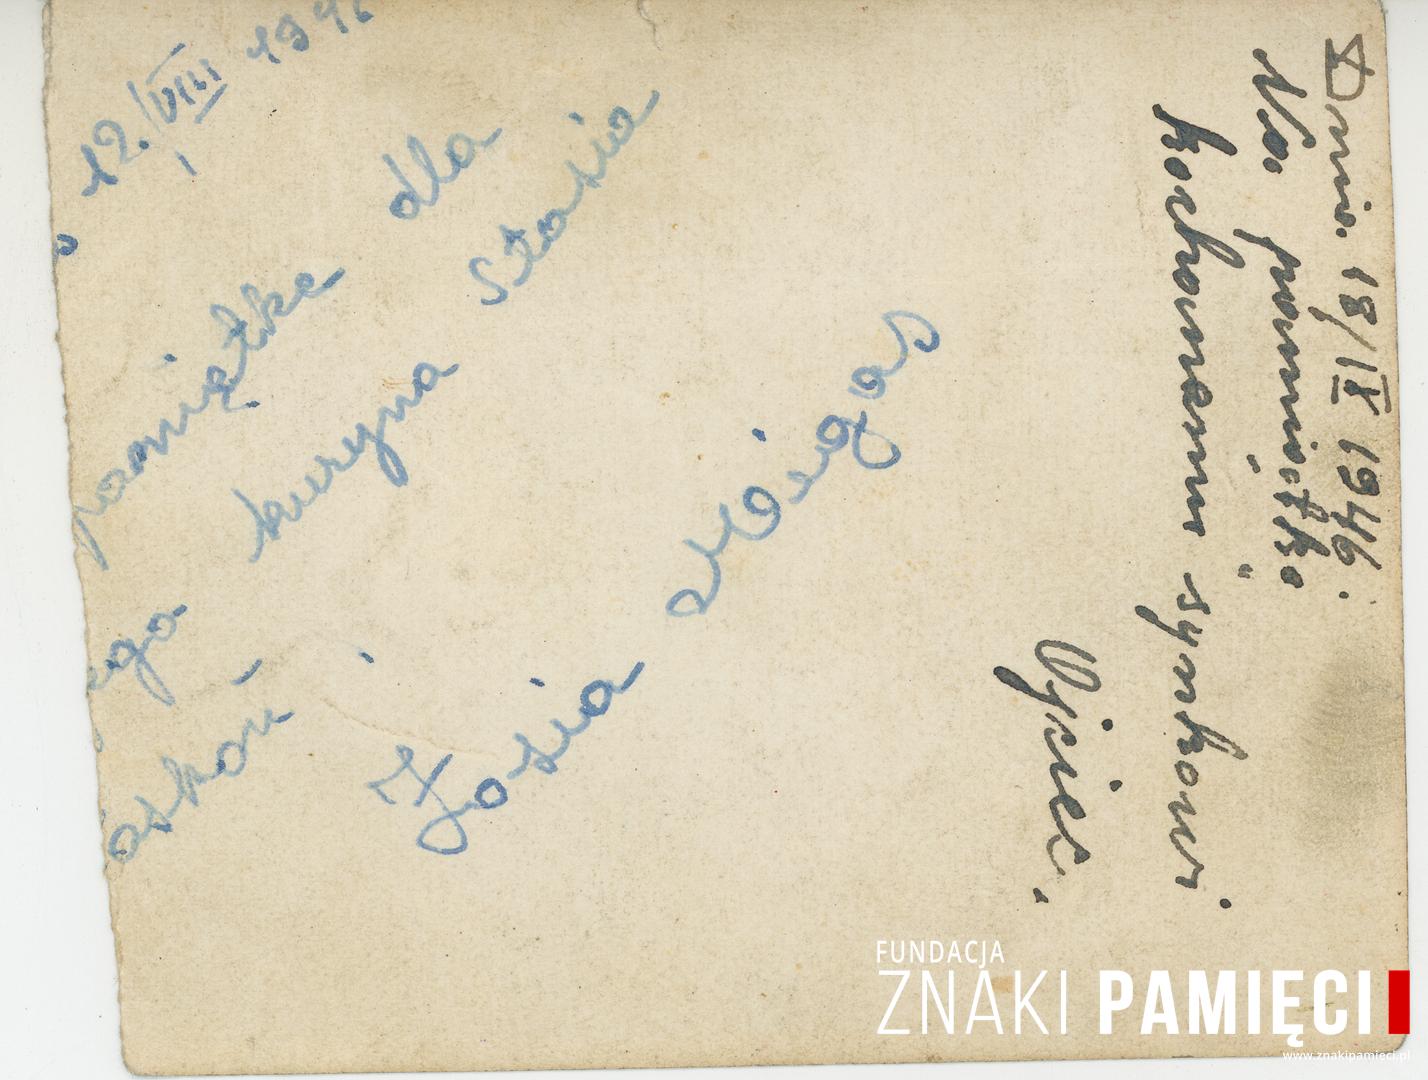 12./VIII 1946
pamiątkę dla
ego kuzyna Stasia
Józia Migas
Dnia. 18/IX 1946.
Na pamiątkę
kochanemu synkowi
Ojciec.
FUNDACJA
ZNAKI PAMIĘCI
www.znakipamieci.pl